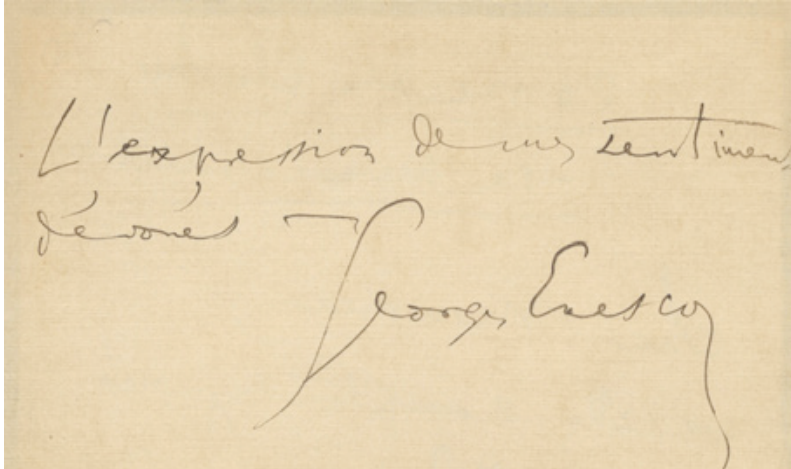 L'expression de mes sentimen
dévoués —
Georges Enesco